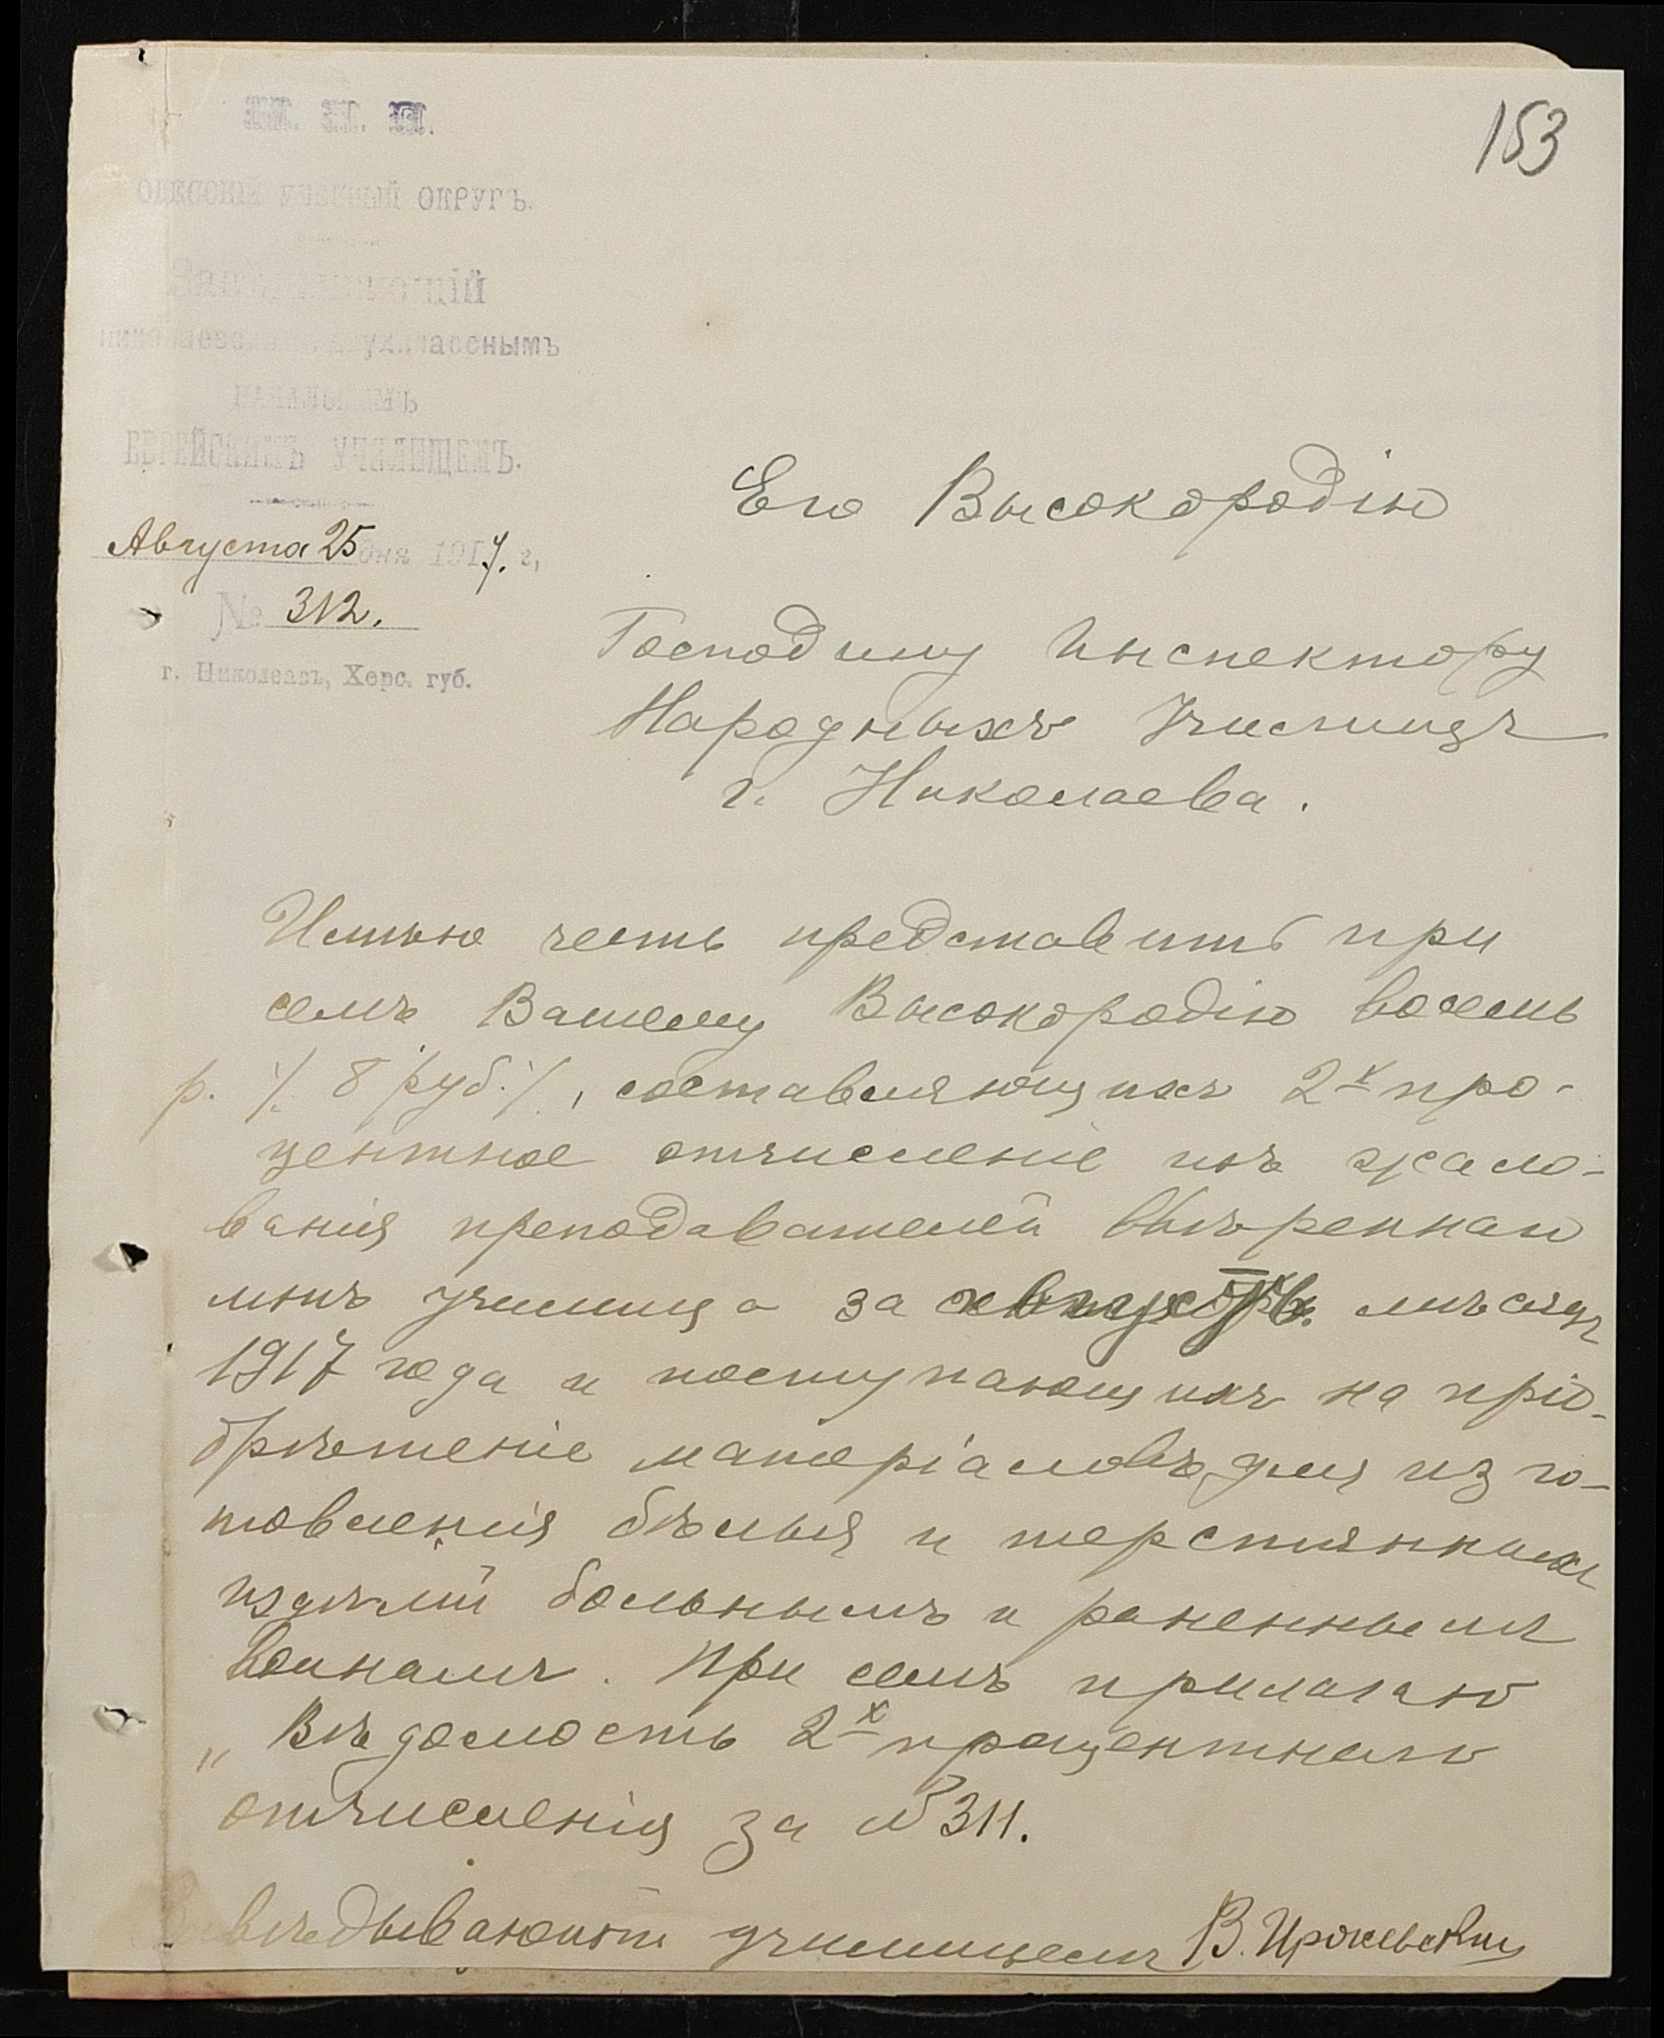 153
М. Н. П.
ОДЕССКІЙ УЧЕБНЫЙ ОКРУГЪ.
Завѣдывающій
николаевскимъ двухкласснымъ
НАЧАЛЬНЫМЪ
ЕВРЕЙСКИМЪ УЧИЛИЩЕМЪ.
Августа 25 дня 1917. г,
№ 312.
г. Николаевъ, Херс. губ.
Его Высокородію
Господину Инспектору
Народныхъ Училищъ
г. Николаева.
Имѣю честь представить при
семъ Вашему Высокородію восемь
р. /. 8 руб. /., составляющихъ 2-х про-
центное отчисленіе изъ жало-
ванія преподавателей ввѣреннаго
мнѣ училища за мѣсяцъ
1917 года и поступающихъ на пріо-
брѣтеніе матеріаловъ для изго-
товленія бѣлья и шерстянныхъ
издѣлій больнымъ и раненнымъ
воинамъ. При семъ прилагаю
„ Вѣдомость 2-х процентнаго
отчисленія за № 311.
Завѣдывающій училищемъ В.